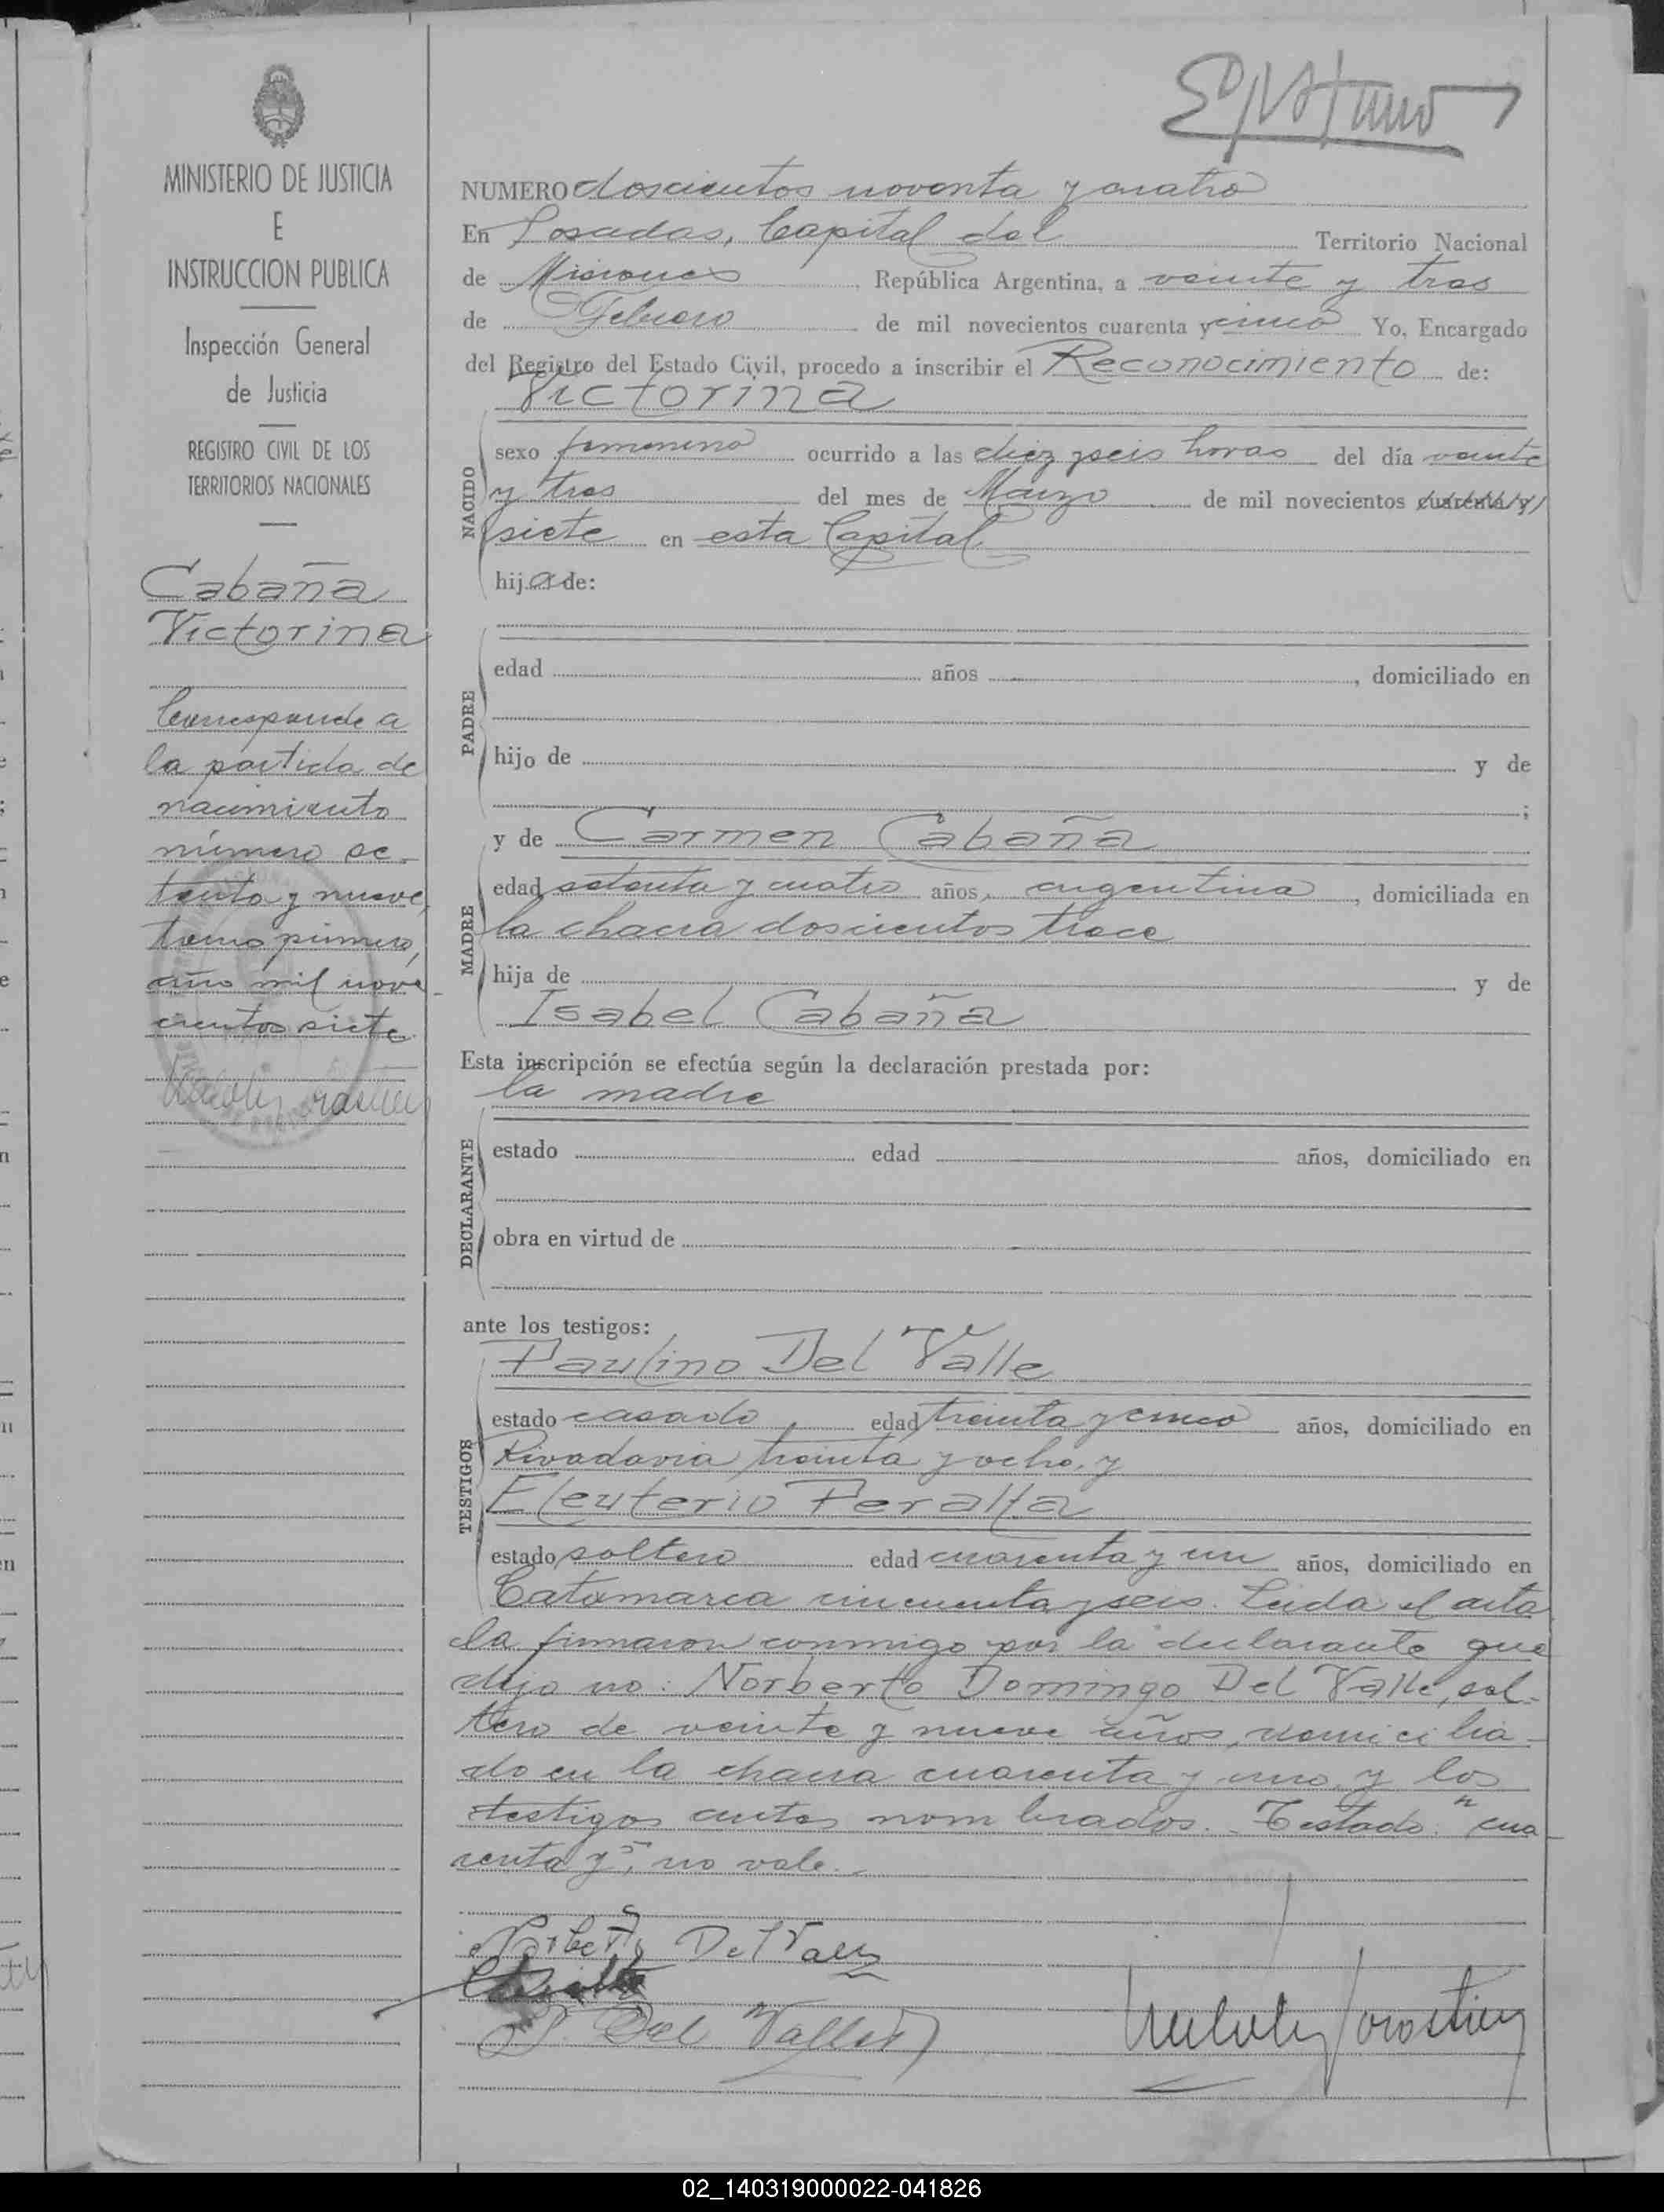 MINISTERIO DE JUSTICIA
E
INSTRUCCION PUBLICA
Inspección General
de Justicia
REGISTRO CIVIL DE LOS
TERRITORIOS NACIONALES
Cabaña
Victorina
Corresponde a
la partida de
nacimiento
número se-
tenta y nueve,
tomo primero,
año mil nove-
cientos siete
NUMERO doscientos noventa y cuatro
En Posadas, Capital del Territorio Nacional
de Misiones, República Argentina, a veinte y tres
de Febrero de mil novecientos cuarenta y cinco Yo, Encargado
del Registro del Estado Civil, procedo a inscribir el Reconocimiento de:
Victorina
NACIDO
sexo femenino ocurrido a las diez y seis horas del día veinte
y tres del mes de Marzo de mil novecientos cuarenta y
siete en esta Capital
hija de:
PADRE
edad años , domiciliado en
hijo de y de
;
y de Carmen Cabaña
MADRE
edad setenta y cuatro años, argentina, domiciliada en
la chacra doscientos trece
hija de y de
Isabel Cabaña
Esta inscripción se efectúa según la declaración prestada por:
la madre
DECLARANTE
estado edad años, domiciliado en
obra en virtud de
ante los testigos:
Paulino Del Valle
TESTIGOS
estado casado, edad treinta y cinco años, domiciliado en
Rivadavia treinta y ocho, y
Eleuterio Peralta
estado soltero edad cuarenta y un años, domiciliado en
Catamarca cincuenta y seis. Leida el acta
la firmaron conmigo por la declarante que
dijo no: Norberto Domingo Del Valle, sol-
tero de veinte y nueve años, domicilia-
do en la chacra cuarenta y uno y los
testigos antes nombrados. - Testado: "cua-
renta y", no vale.-
Norberto Del Valle
P. Del Valle
02_140319000022-041826